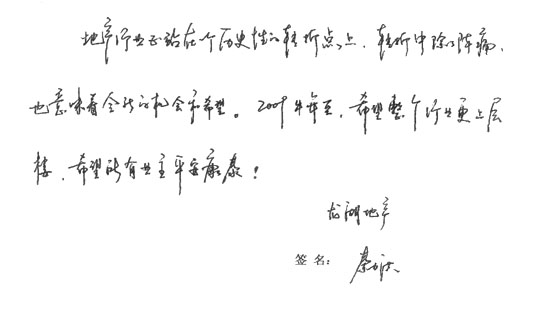 地产行业正站在个历史性的转折点上，转折中除了阵痛，
也意味着全新的机会和希望。2009年将至，希望整个行业更上层
楼，希望所有业主平安康泰！
龙湖地产
签名：